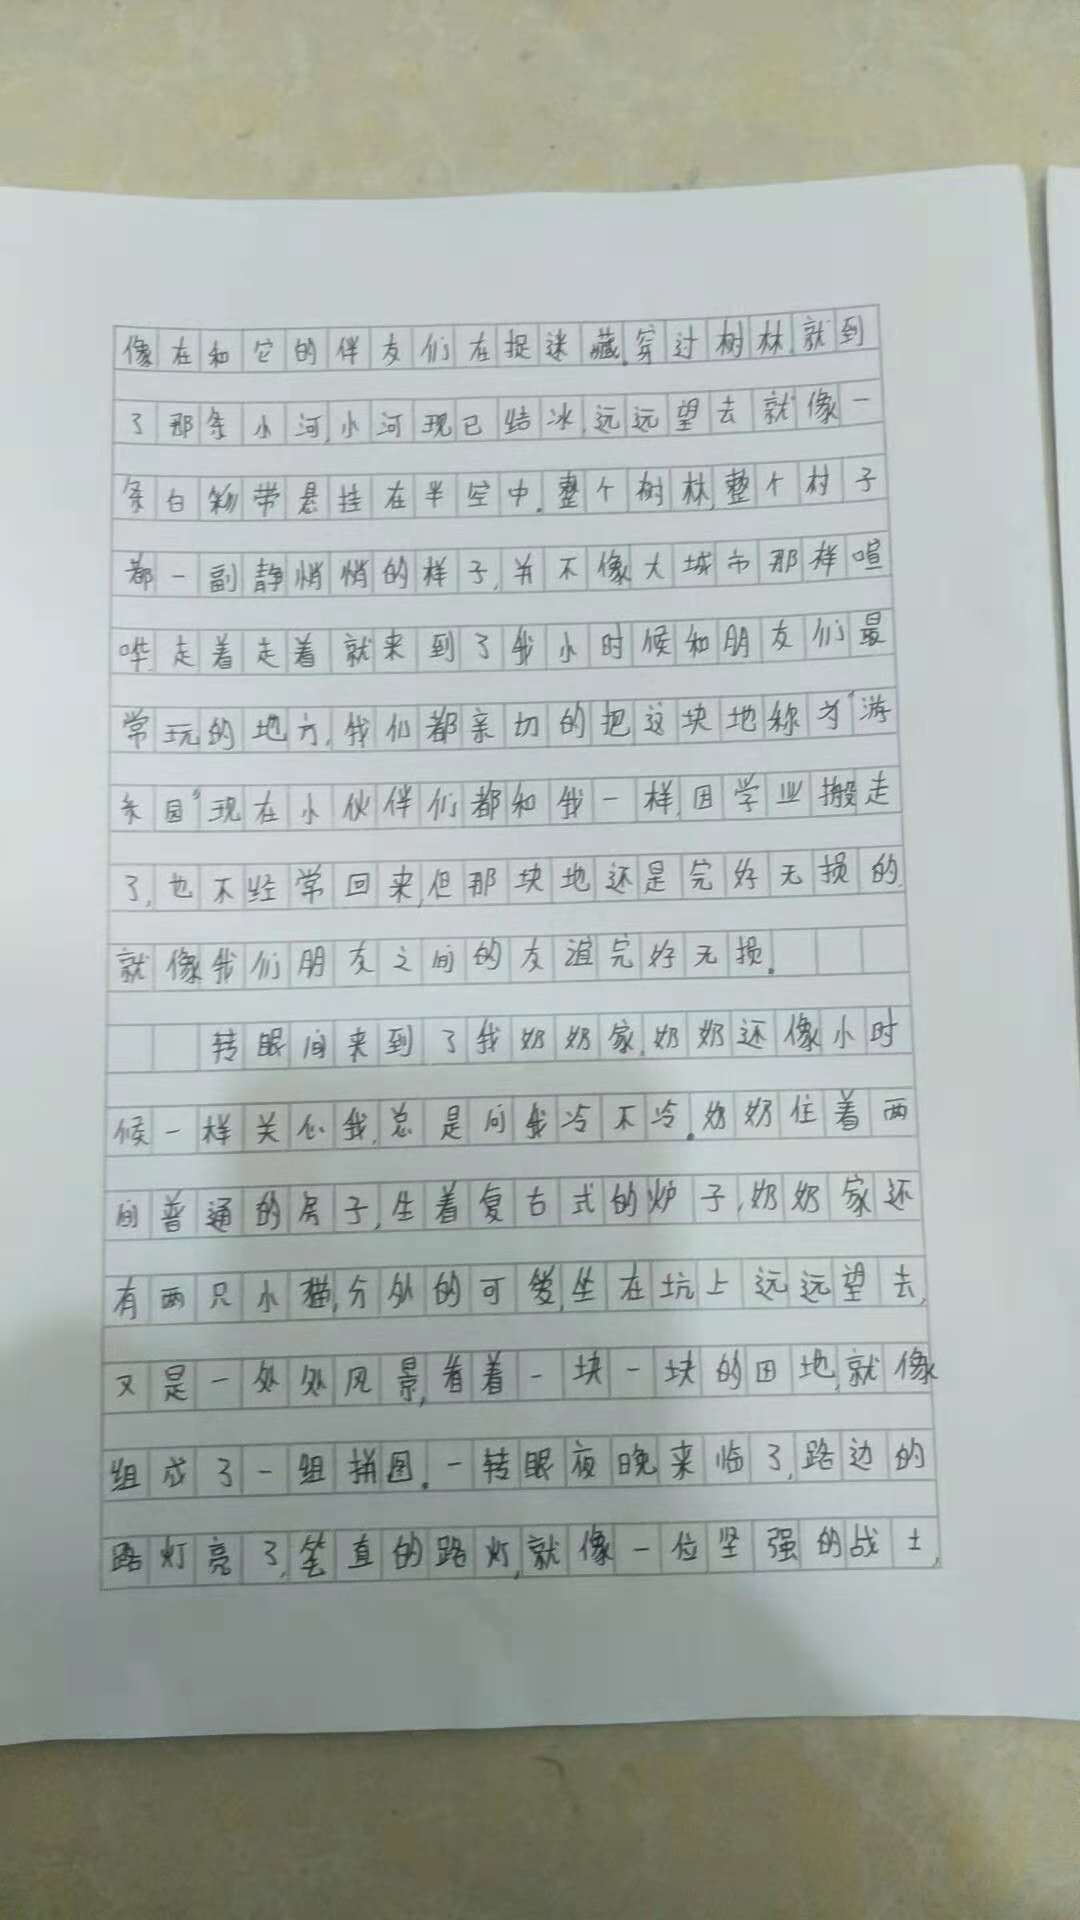 像在和它的伴友们在捉迷藏.穿过树林,就到
了那条小河,小河现已结冰,远远望去就像一
条白纱带悬挂在半空中.整个树林,整个村子
都一副静悄悄的样子,并不像大城市那样喧
哗,走着走着就来到了我小时候和朋友们最
常玩的地方,我们都亲切的把这块地称为“游
乐园”现在小伙伴们都和我一样,因学业搬走
了,也不经常回来,但那块地还是完好无损的,
就像我们朋友之间的友谊完好无损.
转眼间来到了我奶奶家,奶奶还像小时
候一样关心我,总是问我冷不冷.奶奶住着两
间普通的房子,生着复古式的炉子,奶奶家还
有两只小猫,分外的可爱,坐在坑上远远望去,
又是一处处风景,看着一块一块的田地,就像
组成了一组拼图.一转眼夜晚来临了,路边的
路灯亮了,笔直的路灯,就像一位坚强的战士,